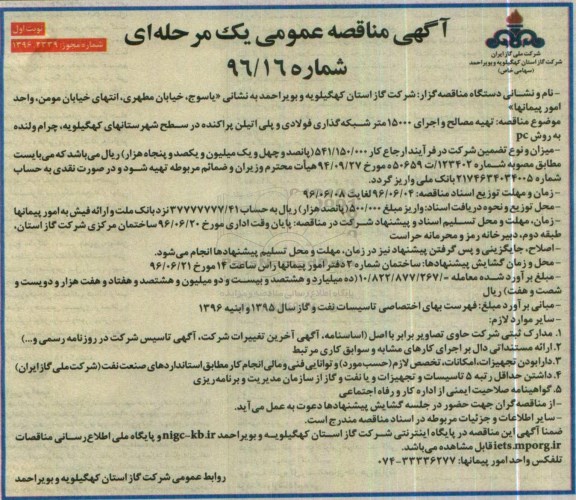 نوبت اول
شماره مجوز: ۱۳۹۶.۴۳۳۹
آگهی مناقصه عمومی یک مرحله‌ای
شماره ۹۶/۱۶
شرکت ملی گاز ایران
شرکت گاز استان کهگیلویه و بویراحمد
(سهامی خاص)
-نام و نشانی دستگاه مناقصه‌گزار: شرکت گاز استان کهگیلویه و بویراحمد به نشانی «یاسوج، خیابان مطهری، انتهای خیابان مومن، واحد
امور پیمانها»
موضوع مناقصه: تهیه مصالح و اجرای ۱۵۰۰۰ متر شبکه‌گذاری فولادی و پلی اتیلن پراکنده در سطح شهرستانهای کهگیلویه، چرام ولنده
به روش pc
-میزان و نوع تضمین شرکت در فرآیند ارجاع کار ۵۴۱/۱۵۰/۰۰۰ (پانصد و چهل و یک میلیون و یکصد و پنجاه هزار) ریال می‌باشد که می‌بایست
مطابق مصوبه شماره ۱۲۳۴۰۲/ت ۵۰۶۵۹ ه مورخ ۹۴/۰۹/۲۷ هیأت محترم وزیران و ضمائم مربوطه تهیه شود و در صورت نقدی به حساب
شماره ۲۱۷۴۶۳۴۰۳۴۰۰۵ بانک ملی واریز گردد.
-زمان و مهلت توزیع اسناد مناقصه: ۹۶/۰۶/۰۴ لغایت ۹۶/۰۶/۰۸
-محل توزیع و نحوه دریافت اسناد: واریز مبلغ ۵۰۰/۰۰۰ (پانصد هزار) ریال به حساب ۳۷۷۷۷۷۷۷/۴۱ نزد بانک ملت و ارائه فیش به امور پیمانها
-زمان، مهلت و محل تسلیم اسناد و پیشنهاد شرکت در مناقصه: پایان وقت اداری مورخ ۹۶/۰۶/۲۰ ساختمان مرکزی شرکت گاز استان،
طبقه دوم، دبیرخانه رمز و محرمانه حراست
-اصلاح، جایگزینی و پس گرفتن پیشنهاد نیز در زمان، مهلت و محل تسلیم پیشنهادها انجام می‌شود.
-محل و زمان گشایش پیشنهادها: ساختمان شماره ۲ دفتر امور پیمانها راس ساعت ۱۴ مورخ ۹۶/۰۶/۲۱
-مبلغ برآورد شده معامله =/۱۰/۸۲۲/۸۷۷/۲۶۷ (ده میلیارد و هشتصد و بیست و دو میلیون و هشتصد و هفتاد و هفت هزار و دویست و
شصت و هفت) ریال
-مبانی برآورد مبلغ: فهرست بهای اختصاصی تاسیسات نفت و گاز سال ۱۳۹۵ و ابنیه ۱۳۹۶
-سایر موارد لازم:
۱. مدارک ثبتی شرکت حاوی تصاویر برابر با اصل (اساسنامه، آگهی آخرین تغییرات شرکت، آگهی تاسیس شرکت در روزنامه رسمی و...)
۲. ارائه مستنداتی دال بر اجرای کارهای مشابه و سوابق کاری مرتبط
۳. دارا بودن تجهیزات، امکانات، تخصص لازم (حسب مورد) و توانایی فنی و مالی انجام کار مطابق استانداردهای صنعت نفت (شرکت ملی گاز ایران)
۴. داشتن حداقل رتبه ۵ تاسیسات و تجهیزات و یا نفت و گاز از سازمان مدیریت و برنامه ریزی
۵. گواهینامه صلاحیت ایمنی از اداره کار و رفاه اجتماعی
-از مناقصه گران جهت حضور در جلسه گشایش پیشنهادها دعوت به عمل می‌آید.
-سایر اطلاعات و جزئیات مربوطه در اسناد مناقصه مندرج است.
ضمنا آگهی این مناقصه در پایگاه اینترنتی شرکت گاز استان کهگیلویه و بویراحمد nigc-kb.ir و پایگاه ملی اطلاع رسانی مناقصات
iets.mporg.ir قابل مشاهده می‌باشد.
تلفکس واحد امور پیمانها: ۳۳۳۳۶۲۷۷-۰۷۴
روابط عمومی شرکت گاز استان کهگیلویه و بویراحمد